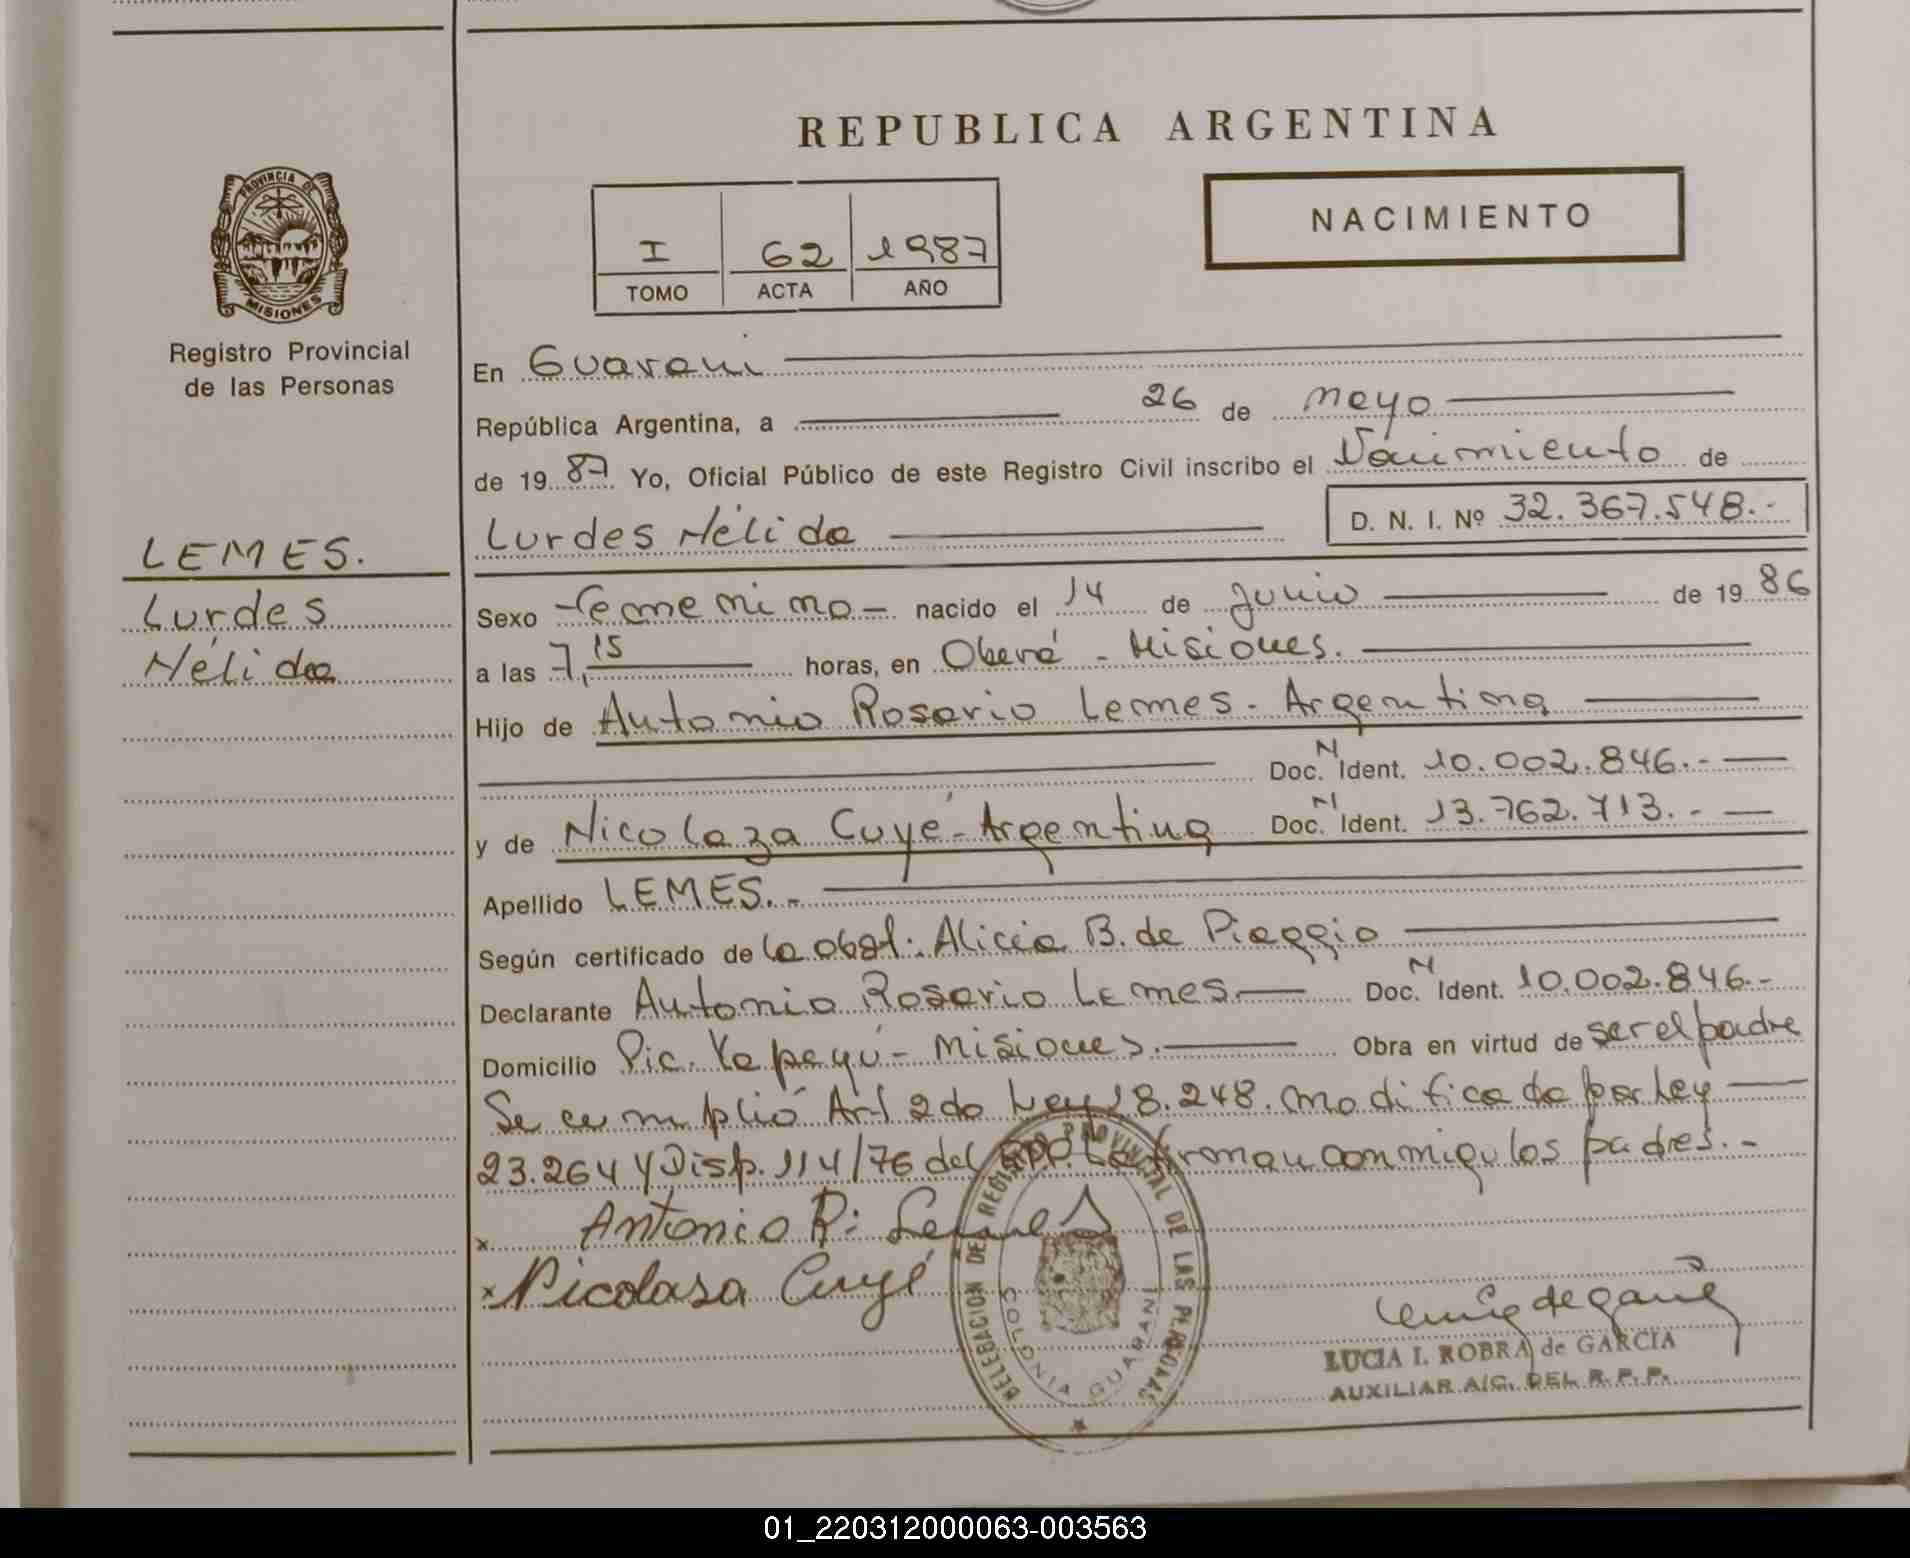 REPUBLICA ARGENTINA
PROVINCIA DE
MISIONES
Registro Provincial
de las Personas
I 62 1987
TOMO ACTA AÑO
NACIMIENTO
En Guarani
República Argentina, a 26 de mayo
de 19 87 Yo, Oficial Público de este Registro Civil inscribo el Nacimiento de
Lurdes Nélida D. N. I. Nº 32.367.548.-
LEMES.
Lurdes
Nélida
Sexo femenino - nacido el 14 de junio de 19 86
a las 7,15 horas, en Oberá - Misiones.
Hijo de Antonio Rosario Lemes - Argentino
Doc. N Ident. 10.002.846.-
y de Nicolaza Cuyé - Argentina Doc. N Ident. 13.762.713.-
Apellido LEMES.-
Según certificado de la obst. Alicia B. de Piaggio
Declarante Antonio Rosario Lemes Doc. N Ident. 10.002.846.-
Domicilio Pic. Yapeyú - Misiones. Obra en virtud de ser el padre
Se cumplió Art 2do Ley 18.248. modificada por Ley
23.264 y Disp. 114/76 del RPP. La firman conmigo los padres.-
x Antonio R. Leme
x Nicolasa Cuyé
DELEGACION DE REGISTRO PROVINCIAL DE LAS PERSONAS
COLONIA GUARANI
LUCIA I. ROBRA de GARCIA
AUXILIAR A/C. DEL R. P. P.
01_220312000063-003563